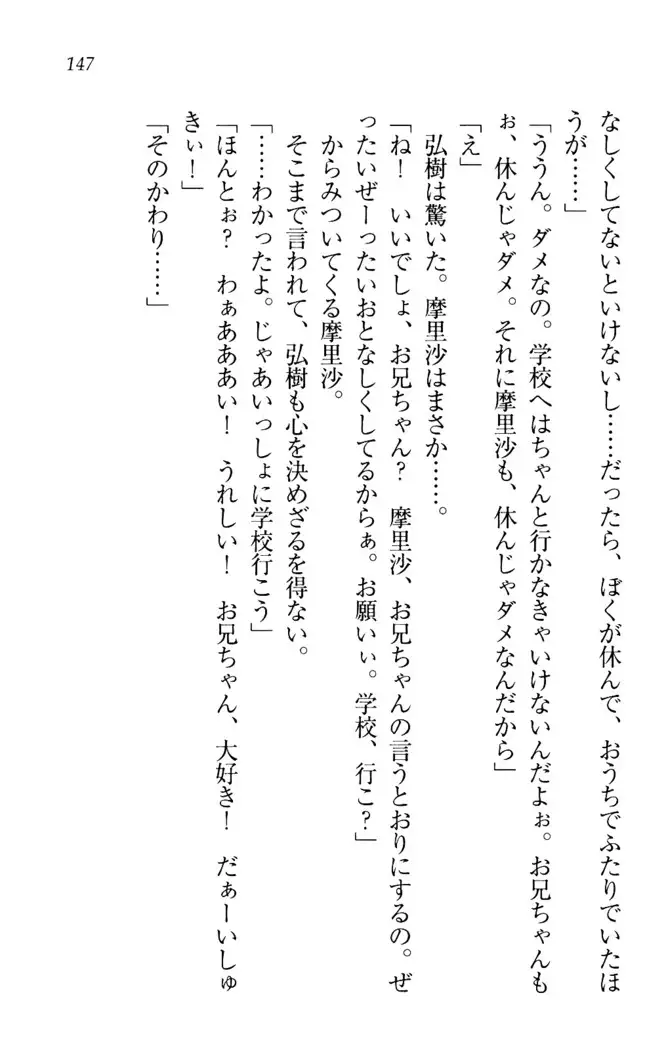 147
なしくしてないといけないし……だったら、ぼくが休んで、おうちでふたりでいたほ
うが……」
「ううん。ダメなの。学校へはちゃんと行かなきゃいけないんだよぉ。お兄ちゃんも
ぉ、休んじゃダメ。それに摩里沙も、休んじゃダメなんだから」
「え」
　弘樹は驚いた。摩里沙はまさか……。
「ね！　いいでしょ、お兄ちゃん？　摩里沙、お兄ちゃんの言うとおりにするの。ぜ
ったいぜーったいおとなしくしてるからぁ。お願いぃ。学校、行こ？」
　からみついてくる摩里沙。
　そこまで言われて、弘樹も心を決めざるを得ない。
「……わかったよ。じゃあいっしょに学校行こう」
「ほんとぉ？　わぁあああい！　うれしい！　お兄ちゃん、大好き！　だぁーいしゅ
きぃ！」
「そのかわり……」